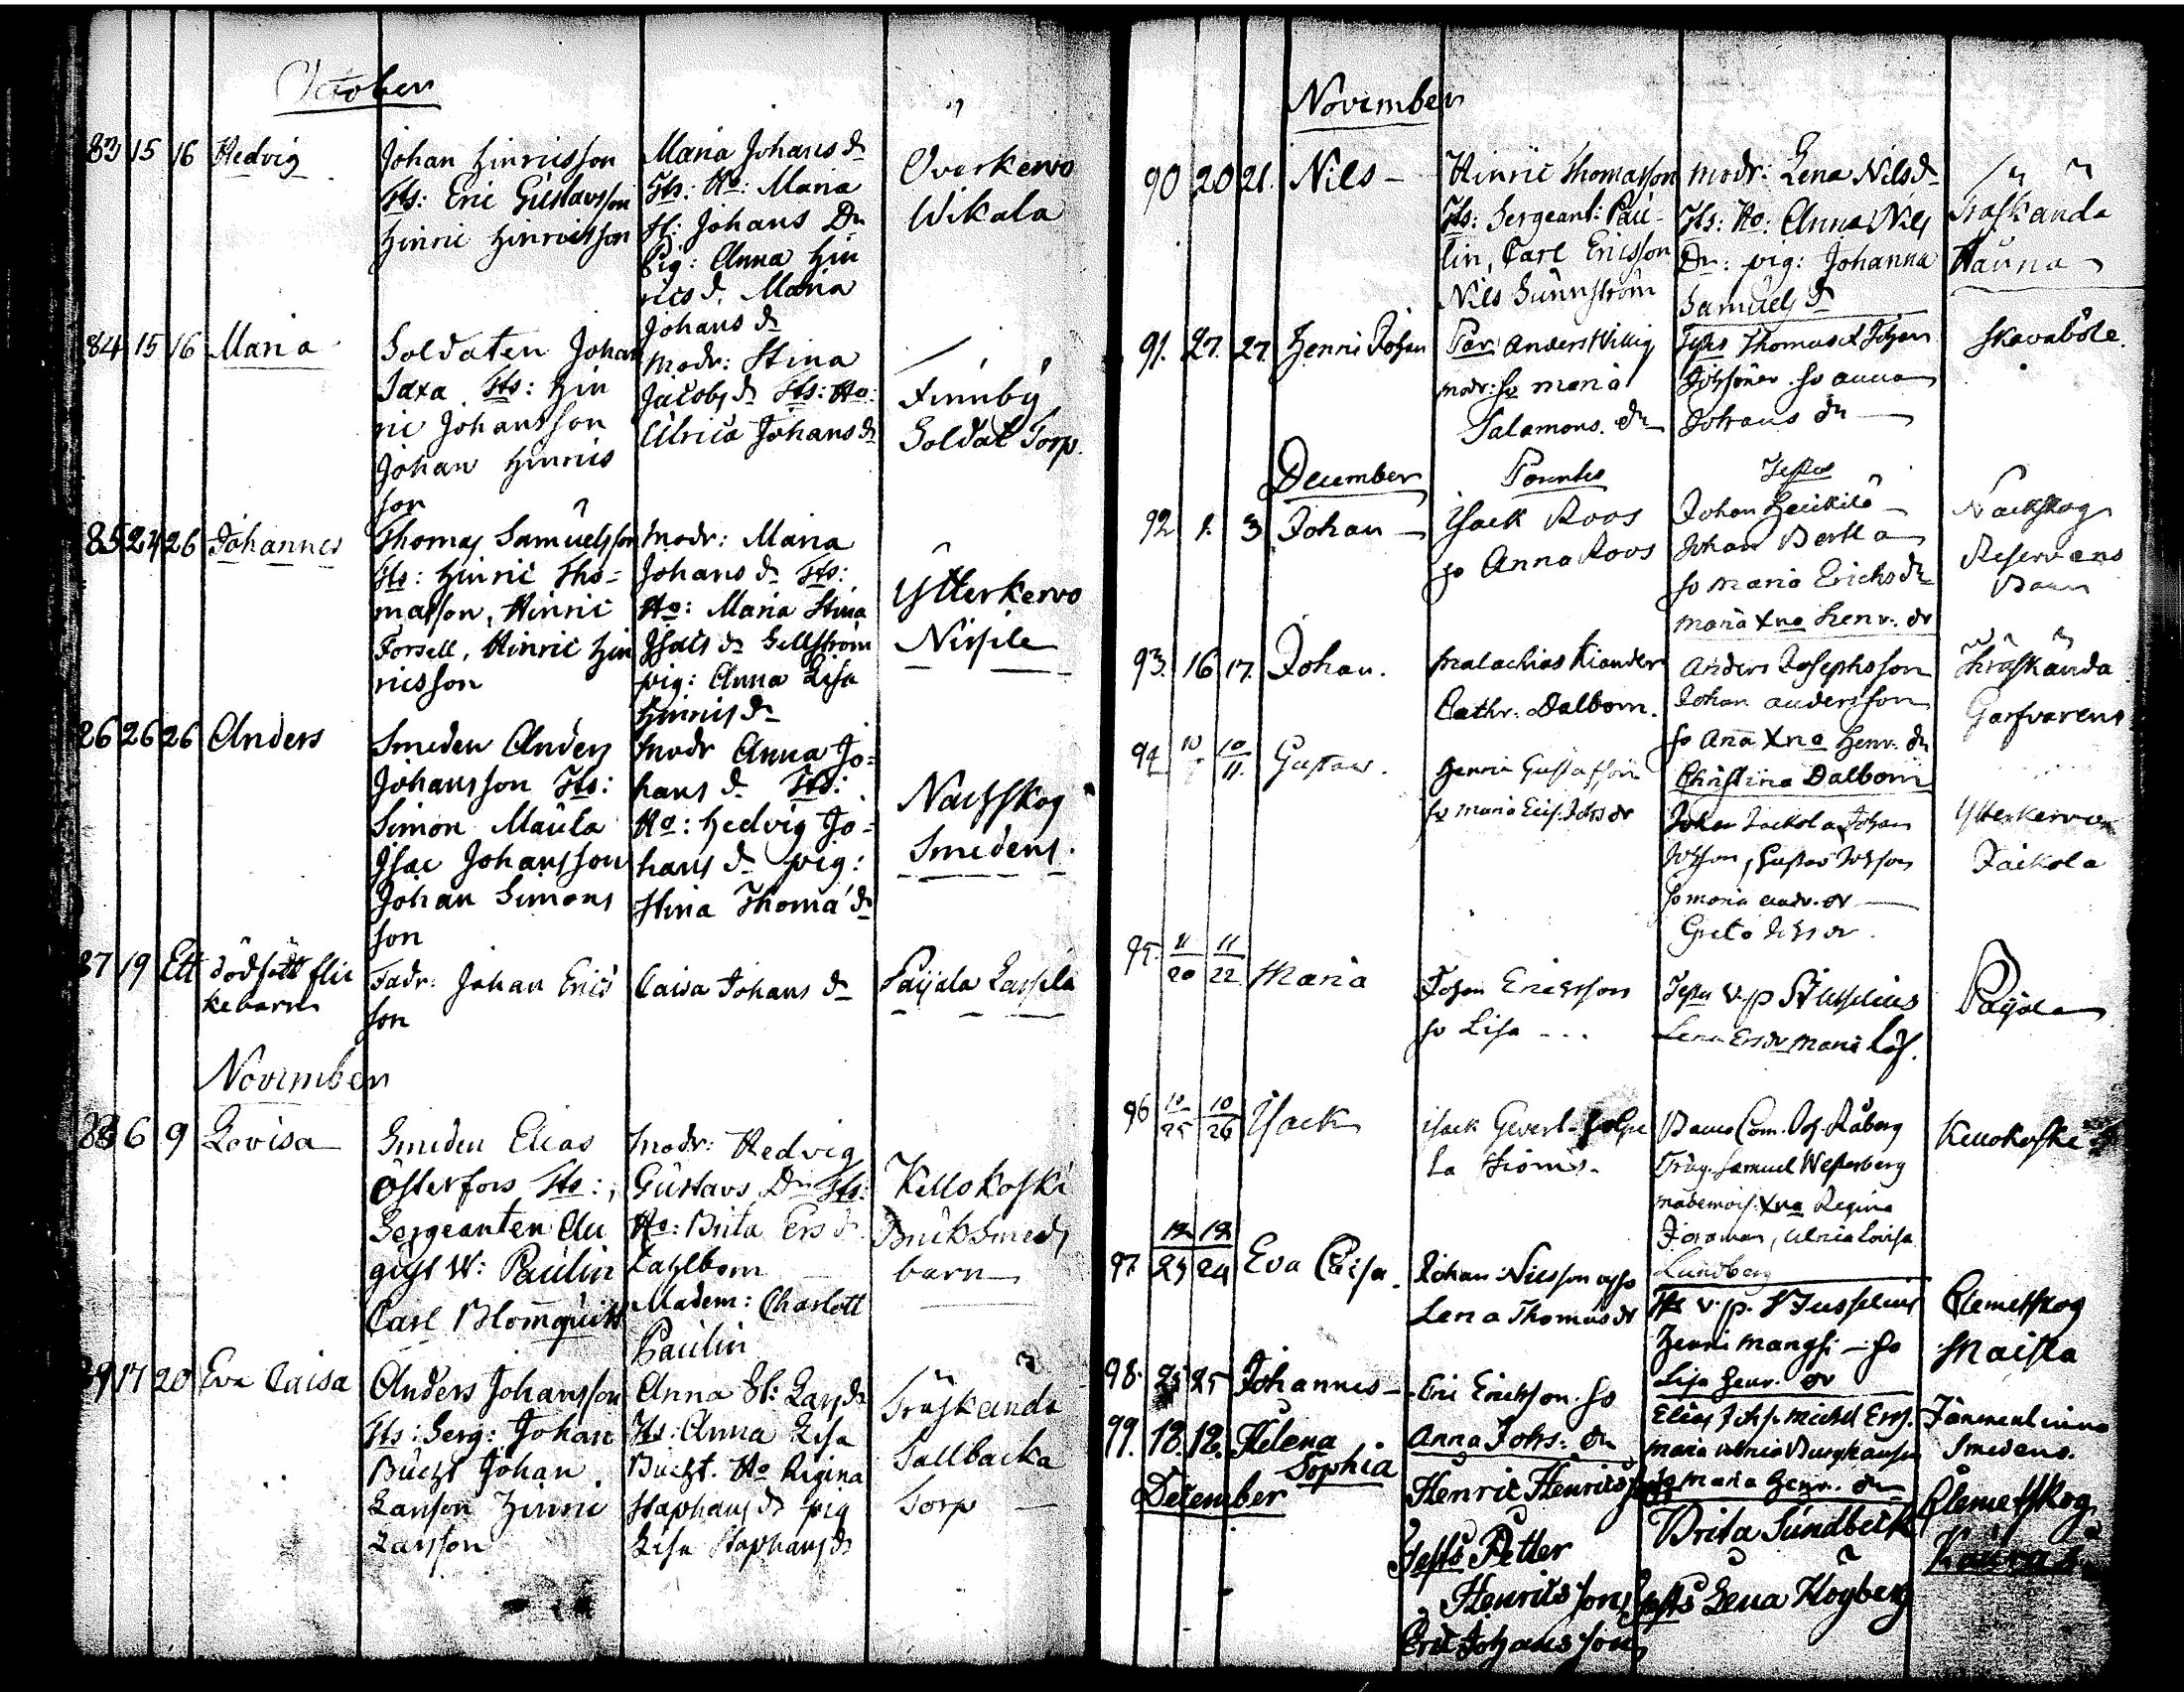 October
83 15 16 Hedvig
Johan Hinricsson
Tts: Eric Gustavsson
Hinric Hinricsson
Maria Johans dr
Tts: Ho: Maria
H: Johans Dr
Pig: Anna Hin
rics d. Maria
Johans dr
Overkervo
Wikala
84 15 16 Maria
Soldaten Johan
Taxa Tts: Hin
ric Johansson
Johan Hinrics
son
modr: Stina
Jacobs dr Tts: Ho:
Ulrica Johans dr
Finnby
Soldat Torp.
85 24 26 Johannes
Thomas Samuelsson
Tts: Hinric Tho=
masson, Hinric
Forsell, Hinric Hin
ricsson
modr: Maria
Johans dr Tts:
Ho: Maria Stina
Isacs dr Sellström
pig: Anna Lisa
Hinrics dr
Ytterkervo
Nissile
86 26 26 Anders
Smeden Anders
Johansson Tts:
Simon Maula
Isac Johansson
Johan Simons
son
modr Anna Jo=
hans d. Tts:
Ho: Hedvig Jo=
hans d pig:
Stina Thoma dr
Nackskog
Smedens.
87 19 Ett dödfött flic
kebarn
Fadr: Johan Erics
son
Caisa Johans dr
Paijala Lassila
November
88 6 9 Lovisa
Smeden Elias
Österfors Tts:,
Sergeanten Au
gust W: Paulin
Carl Blomquist
modr: Hedvig
Gustavs Dr Tts:
Ho: Brita Ers d
Kahlbom
Madem: Charlott
Paulin
Kellokoski
Bruks Smeds
barn
89 17 20 Eva Caisa
Anders Johansson
Tts: Serg: Johan
Bucht Johan
Larsson Hinric
Larsson
Anna H: Lars dr
Tts: Anna Lisa
Bucht. Ho Regina
Staphans dr pig
Lisa Staphans dr
Träskända
Tallbacka
Torp
November
90 20 21. Nils –
Hinric Thomasson
Tts: Sergeant: Pau-
lin, Carl Ericsson
Nils Sunnström
modr: Lena Nils dr
Tts: Ho: Anna Nils
Dr: pig: Johanna
Samuels dr
Träskända
Hauna
91. 27. 27. Henric Johan
Par Anders Willig
modr: ho maria
Salamons. dr
Testes Thomas & Johan
Johssöner. ho anna
Johans dr
Skavaböle.
December Parentes Testes
92 1. 3 Johan
Isack Roos
ho Anna Roos
Johan Heickilä
Johan Bertla
ho Maria Erichs dr
maria Xna Henr. dr
Nackskog
Reservens
Barn
93. 16 17. Johan.
Malachias Kiander
Cathr. Dalbom.
Anders Josephsson
Johan andersson
ho Ana Xna Henr. dr
Christina Dalbom
Träskända
Garfvarens
94 Gustav.
Henric Gustafsson
ho Maria Elis. Johs dr
Johan Jackola Johan
Johsson, Gustav Johsson
ho maria andr. dr
Greta Johs dr.
Ytterkervo
Jackola
95. 11/20 11/22 Maria
Johan Ericsson
ho Lisa ...
Testes v.p
Lena Ers dr Maria
Paijala
96 10/25 10/26 Isack
Isack
La
Råberg
Samuel Westerberg
mademois. Xna Regina
Forsman, Ulrica Lovisa
Lundberg
Kellokoski
97. 12/23 12/24 Eva Caisa.
Johan Nilsson o ho
Lena Thomas dr
Tts v.p.
Henric Mangsi – ho
Lisa Henr. dr
Clemetskog
Maista
98. 25 25 Johannes –
Eric Ericsson. ho
Anna Johs: dr
Elias Johss. Michel Erss.
maria ulrica Burghausen
maria Henr. dr
Smedens.
99. 12. 12. Helena
Sophia
December
Henric Henricsson
Tests Petter
Henricsson,
Eric Johansson
Brita Sundbeck
Tests Lena Högberg
Clemetskog